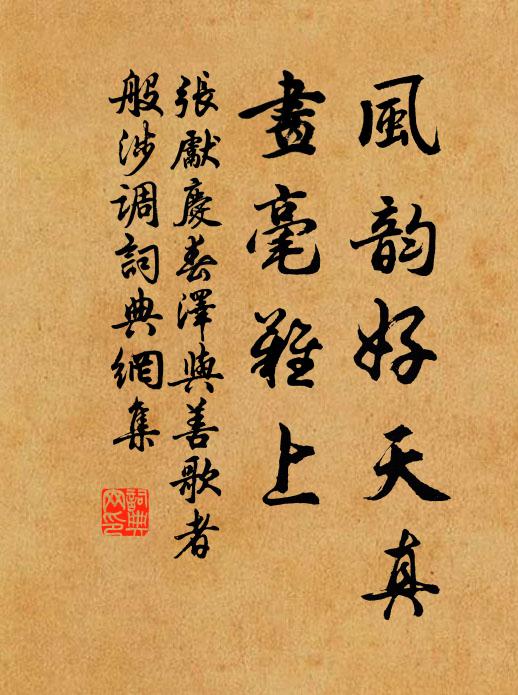 風韵好天真
畫毫難上
張獻慶春澤與善歌者
般涉调詞典網集
詞典
网印